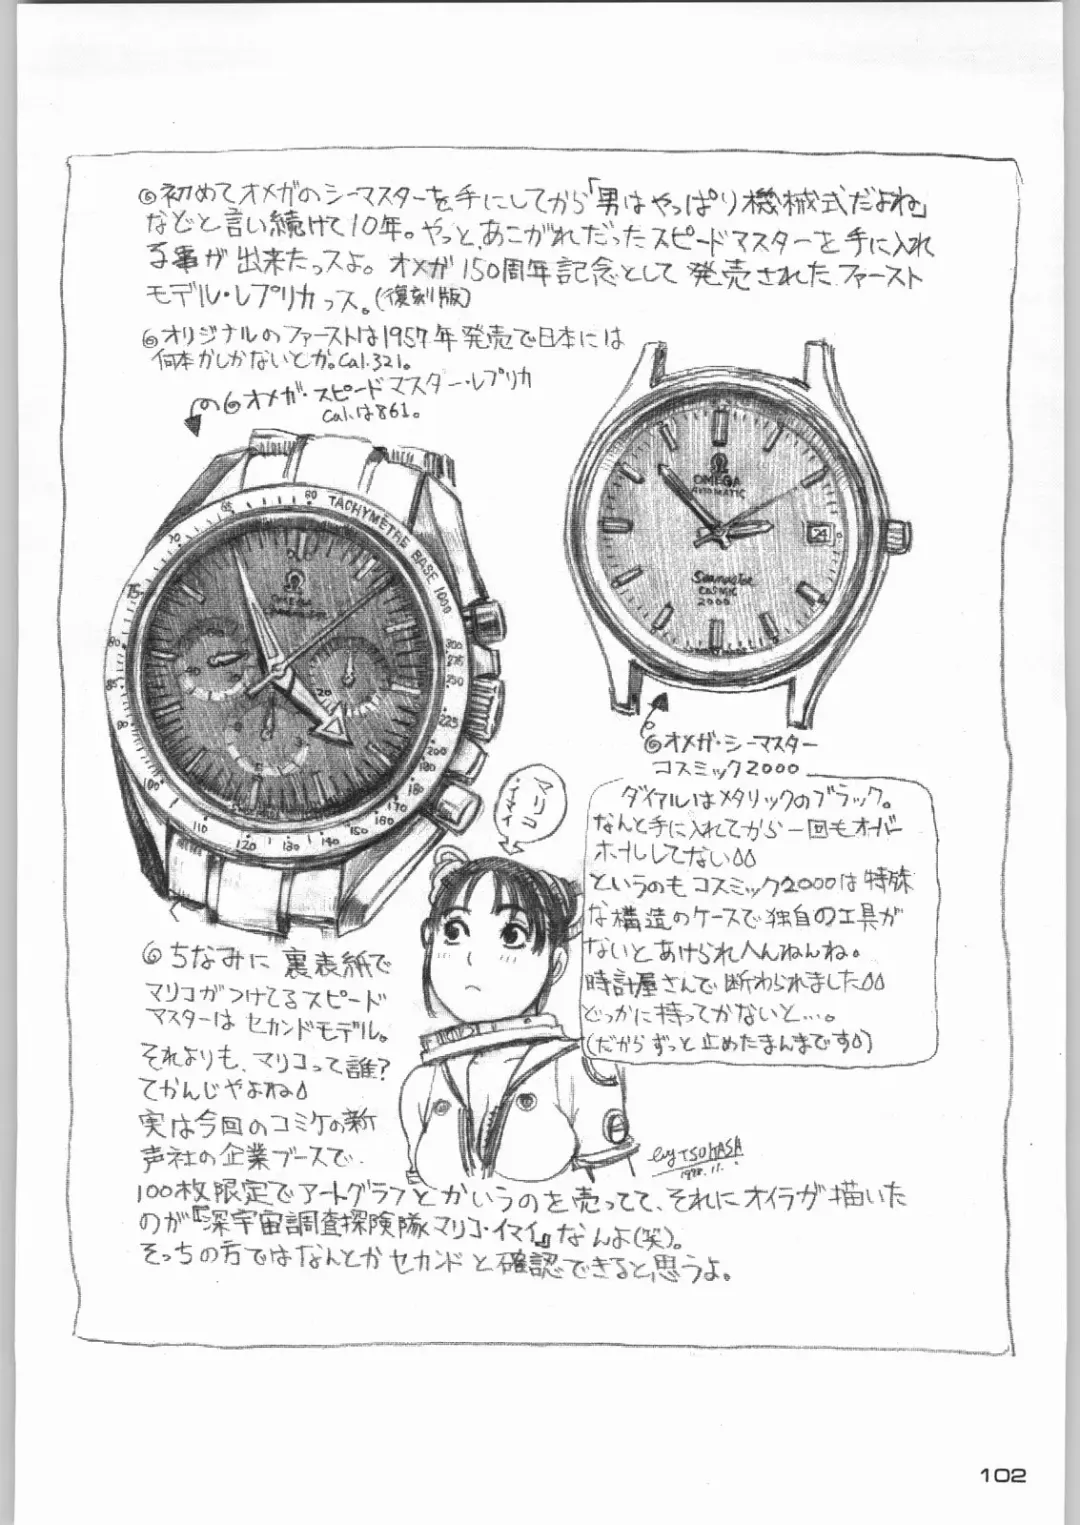 ◎初めてオメガのシーマスターを手にしてから「男はやっぱり機械式だよね」
などと言い続けて10年。やっと、あこがれだったスピードマスターを手に入れ
る事が出来たっスよ。オメガ150周年記念として発売されたファースト
モデル・レプリカっス。(復刻版)
◎オリジナルのファーストは1957年発売で日本には
何本かしかないとか。Cal.321。
◎オメガ・スピードマスター・レプリカ
Cal.は861。
TACHYMÈTRE BASE 1000
60
65
70
75
80
85
90
100
110
120
130
140
150
160
170
180
190
200
225
250
275
300
20
OMEGA
AUTOMATIC
24
Seamaster
COSMIC
2000
◎オメガ・シーマスター
コスミック2000
ダイアルはメタリックのブラック。
なんと手に入れてから一回もオーバー
ホールしてない
というのもコスミック2000は特殊
な構造のケースで独自の工具が
ないとあけられへんねんね。
時計屋さんで断わられました
どっかに持ってかないと…。
(だからずっと止めたまんまです)
マリコ
・イマイ
◎ちなみに裏表紙で
マリコがつけてるスピード
マスターはセカンドモデル。
それよりも、マリコって誰?
てかんじやよね
実は今回のコミケの新
声社の企業ブースで
100枚限定でアートグラフとかいうのを売ってて、それにオイラが描いた
のが『深宇宙調査探険隊マリコ・イマイ』なんよ(笑)。
そっちの方ではなんとかセカンドと確認できると思うよ。
by TSUKASA
1998.11.
102